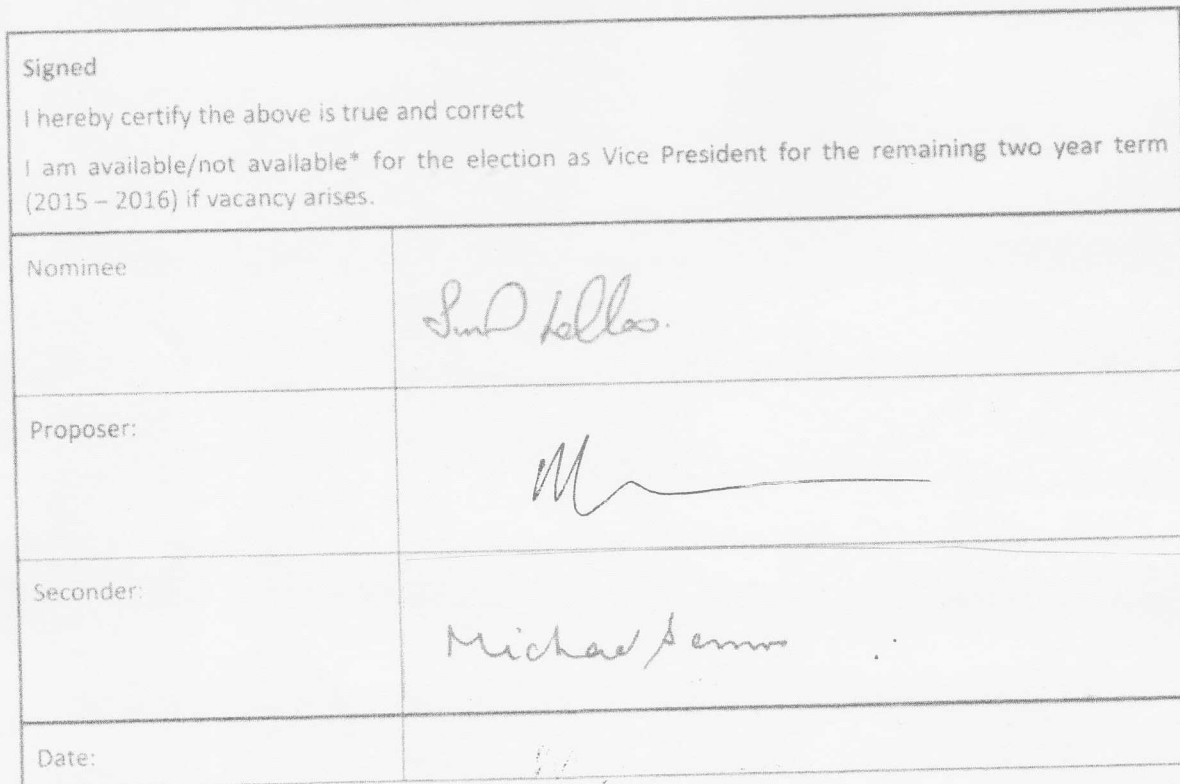 Signed
I hereby certify the above is true and correct
I am available/not available* for the election as Vice President for the remaining two year term
(2015 – 2016) if vacancy arises.
Nominee
Proposer:
Seconder:
Michael
Date: